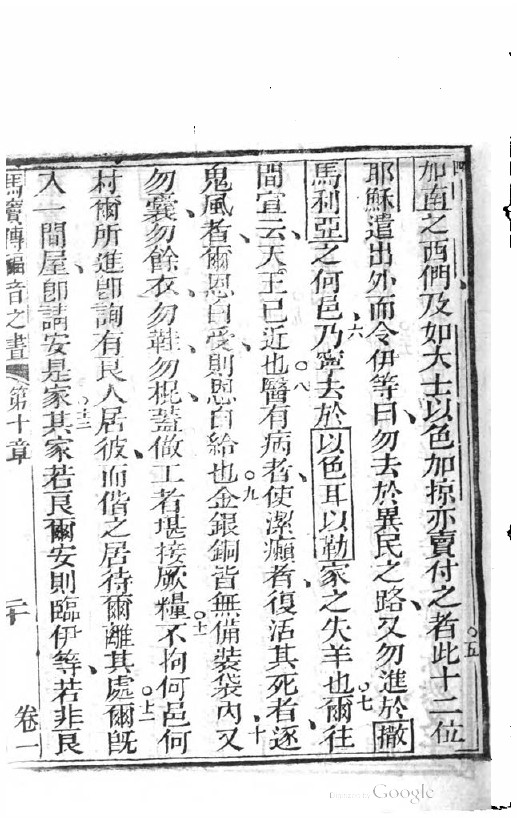 加南之西們及如大士以色加掠亦賣付之者此十二位
耶穌遣出外而令伊等曰勿去於異民之路又勿進於撒
馬利亞之何邑乃寧去於以色耳以勒家之失羊也爾往
間宜云天王已近也醫有病者使潔癩者復活其死者逐
鬼風者爾恩白受則恩白給也金銀銅皆無備裝袋內又
勿囊勿餘衣勿鞋勿棍蓋做工者堪接厥糧不拘何邑何
村爾所進卽詢有良人居彼而偕之居待爾離其處爾旣
入一間屋卽請安是家其家若良爾安則臨伊等若非良
馬竇傳福音之書 第十章 二十 卷一
Digitized by Google